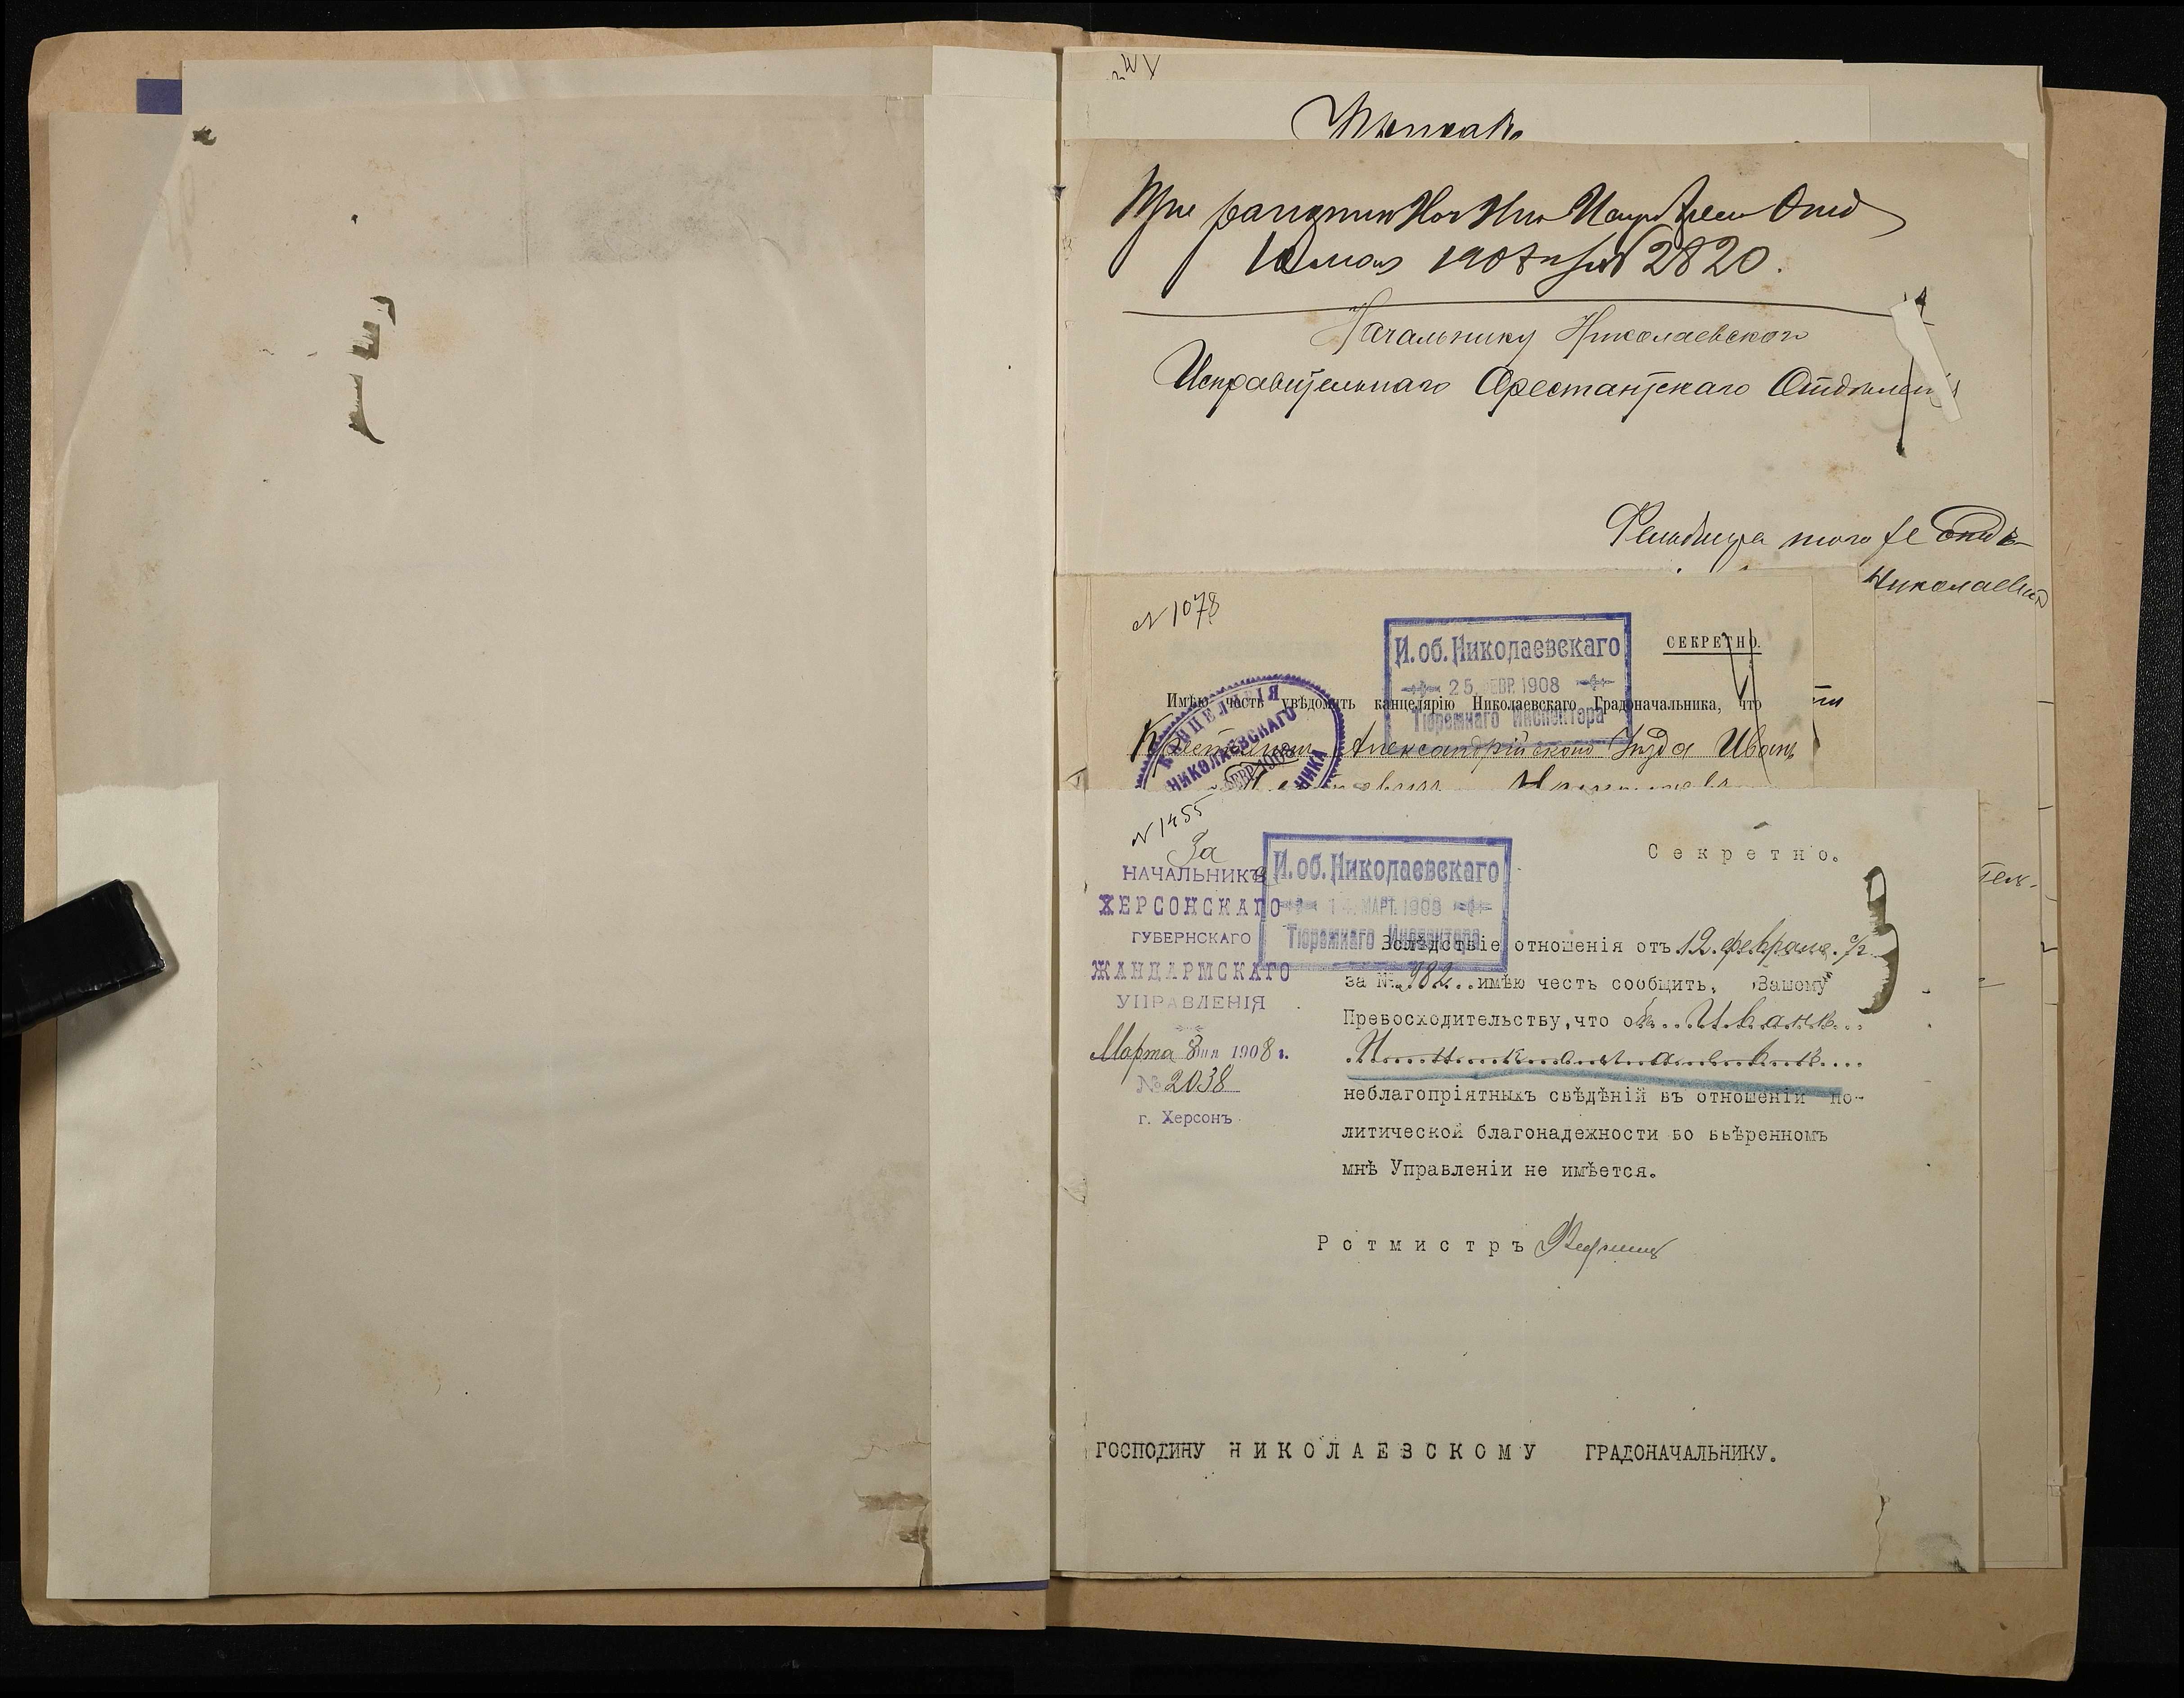 При рапорте
1908 № 2820.
Начальнику Николаевскаго
Исправительнаго Арестантскаго Отделенія
Фельдшера того же Отдѣ-
Николаевъ
№ 1078
И. об. Николаевскаго
25 ФЕВР. 1908
Тюремнаго Инспектора
СЕКРЕТНО.
Имѣю честь увѣдомить канцелярію Николаевскаго Градоначальника, что
КАНЦЕЛЯРІЯ
НИКОЛАЕВСКАГО
ФЕВР 1908
Крестьянин Александрійскаго Уѣзда Иванъ
№ 1455
За
НАЧАЛЬНИКА
ХЕРСОНСКАГО
ГУБЕРНСКАГО
ЖАНДАРМСКАГО
УПРАВЛЕНІЯ
Марта 8 дня 1908 г.
№ 2038
г. Херсонъ
И. об. Николаевскаго
МАРТ. 1908
Тюремнаго Инспектора
Секретно.
Вслѣдствіе отношенія отъ 12 февраля с/г
за № 982 имѣю честь сообщить, Вашему
Превосходительству, что объ Иванѣ
неблагопріятныхъ свѣдѣній въ отношеніи по-
литической благонадежности во ввѣренномъ
мнѣ Управленіи не имѣется.
Ротмистръ
ГОСПОДИНУ НИКОЛАЕВСКОМУ ГРАДОНАЧАЛЬНИКУ.